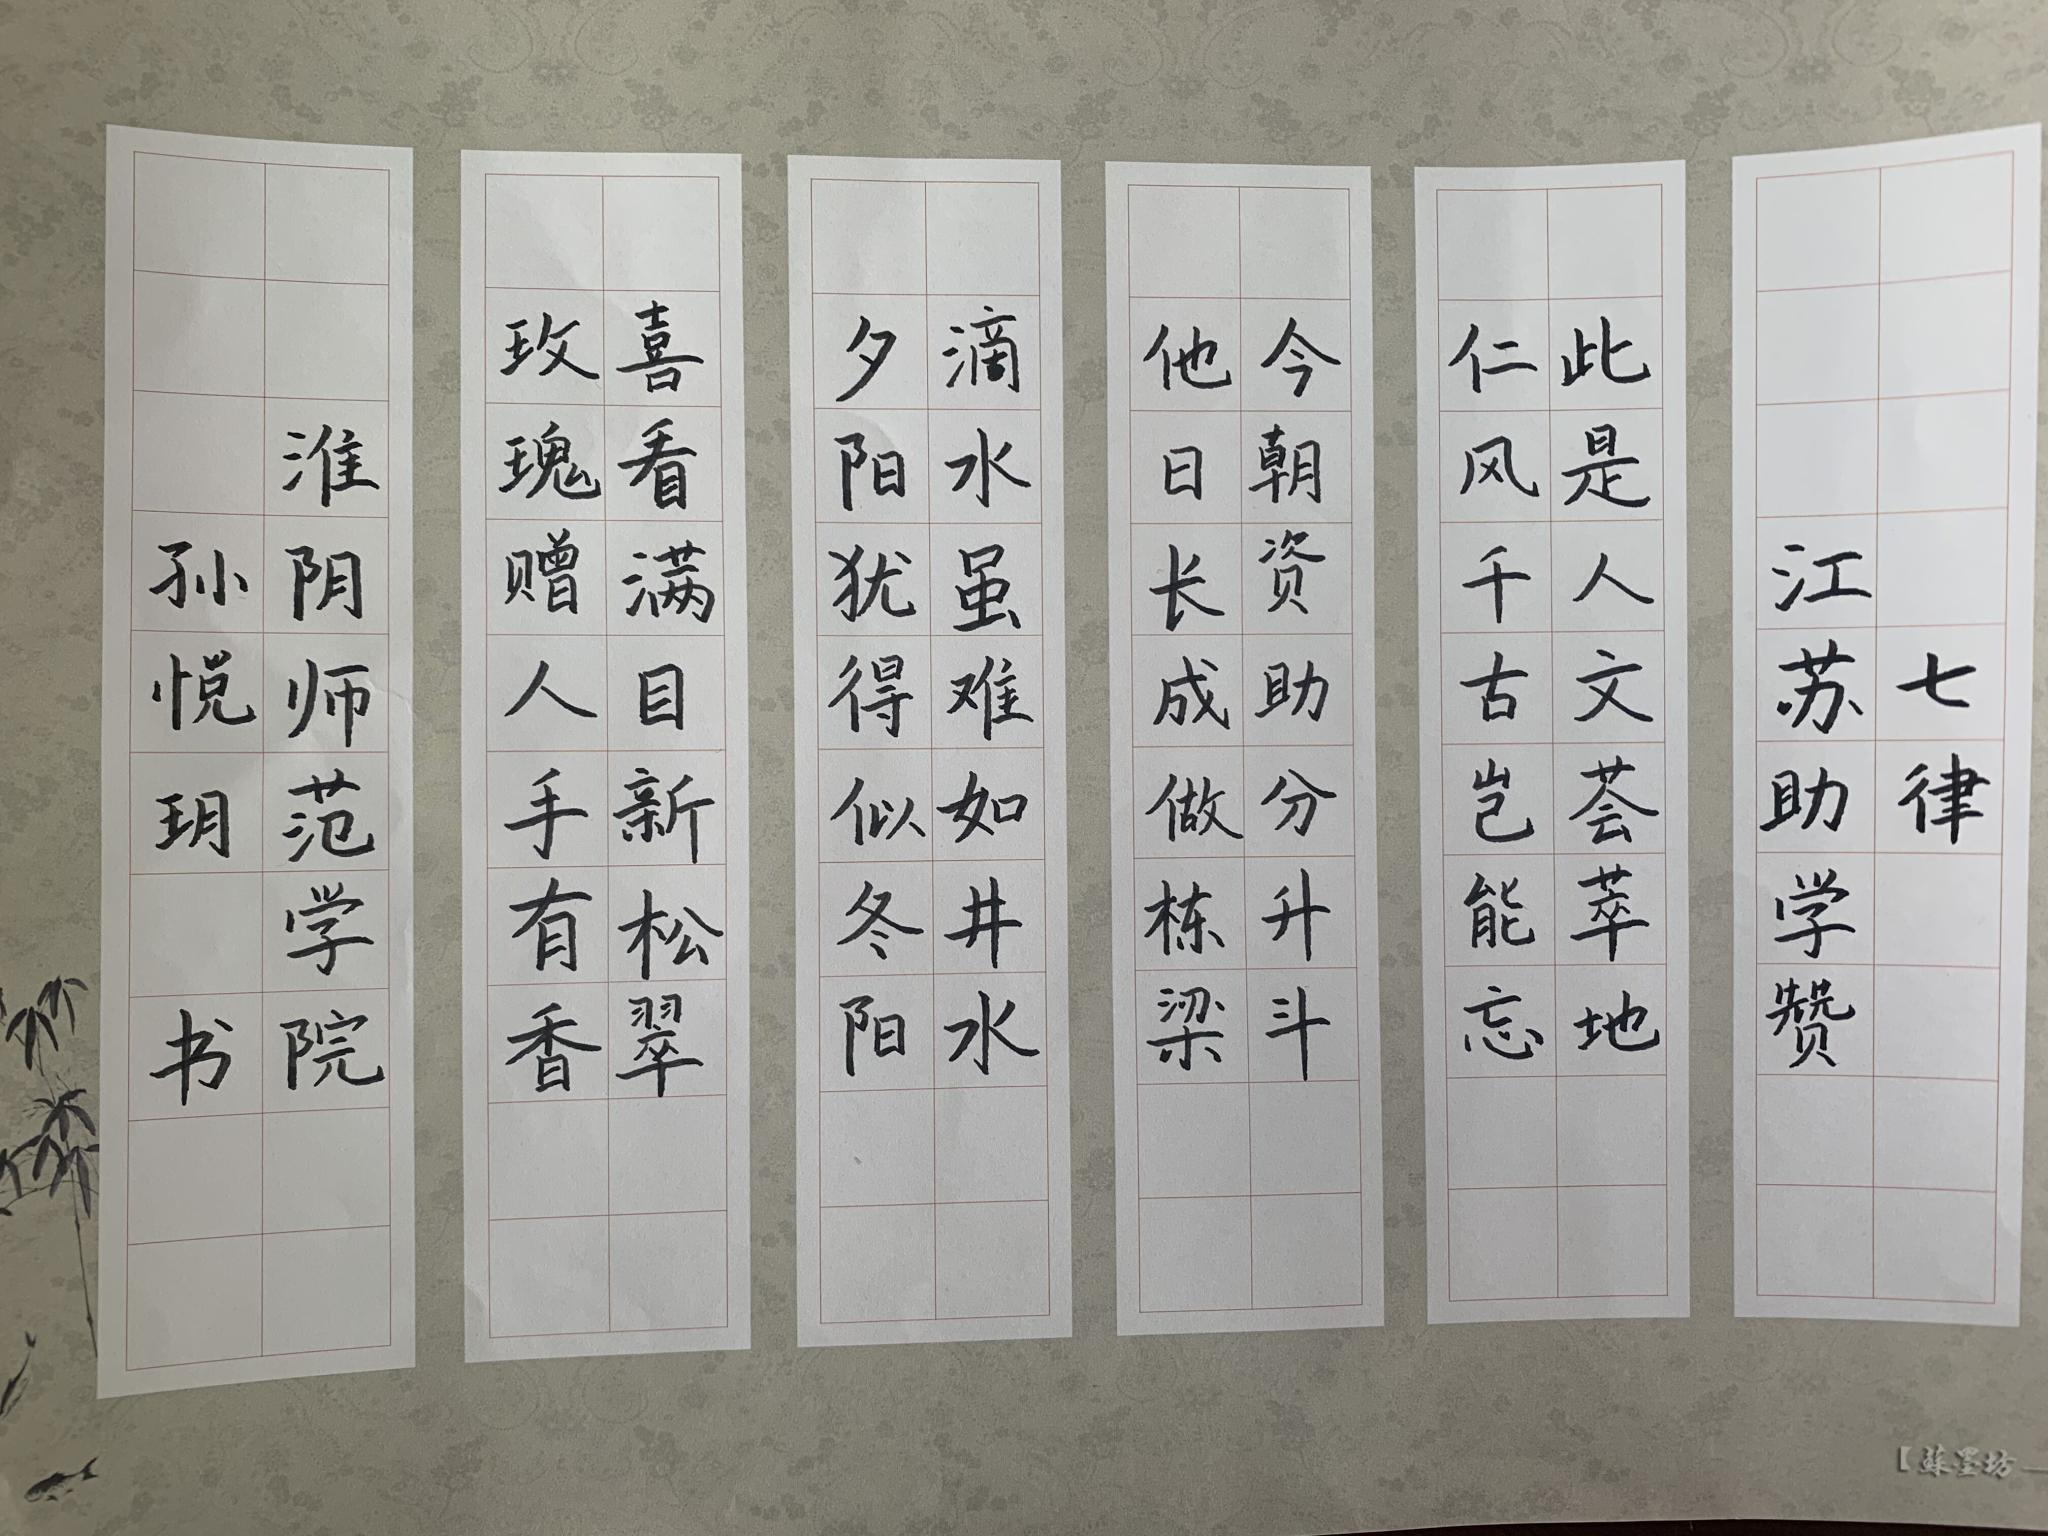 七律
江苏助学赞
此是人文荟萃地
仁风千古岂能忘
今朝资助分升斗
他日长成做栋梁
滴水虽难如井水
夕阳犹得似冬阳
喜看满目新松翠
玫瑰赠人手有香
淮阴师范学院
孙悦玥 书
【蘇墨坊